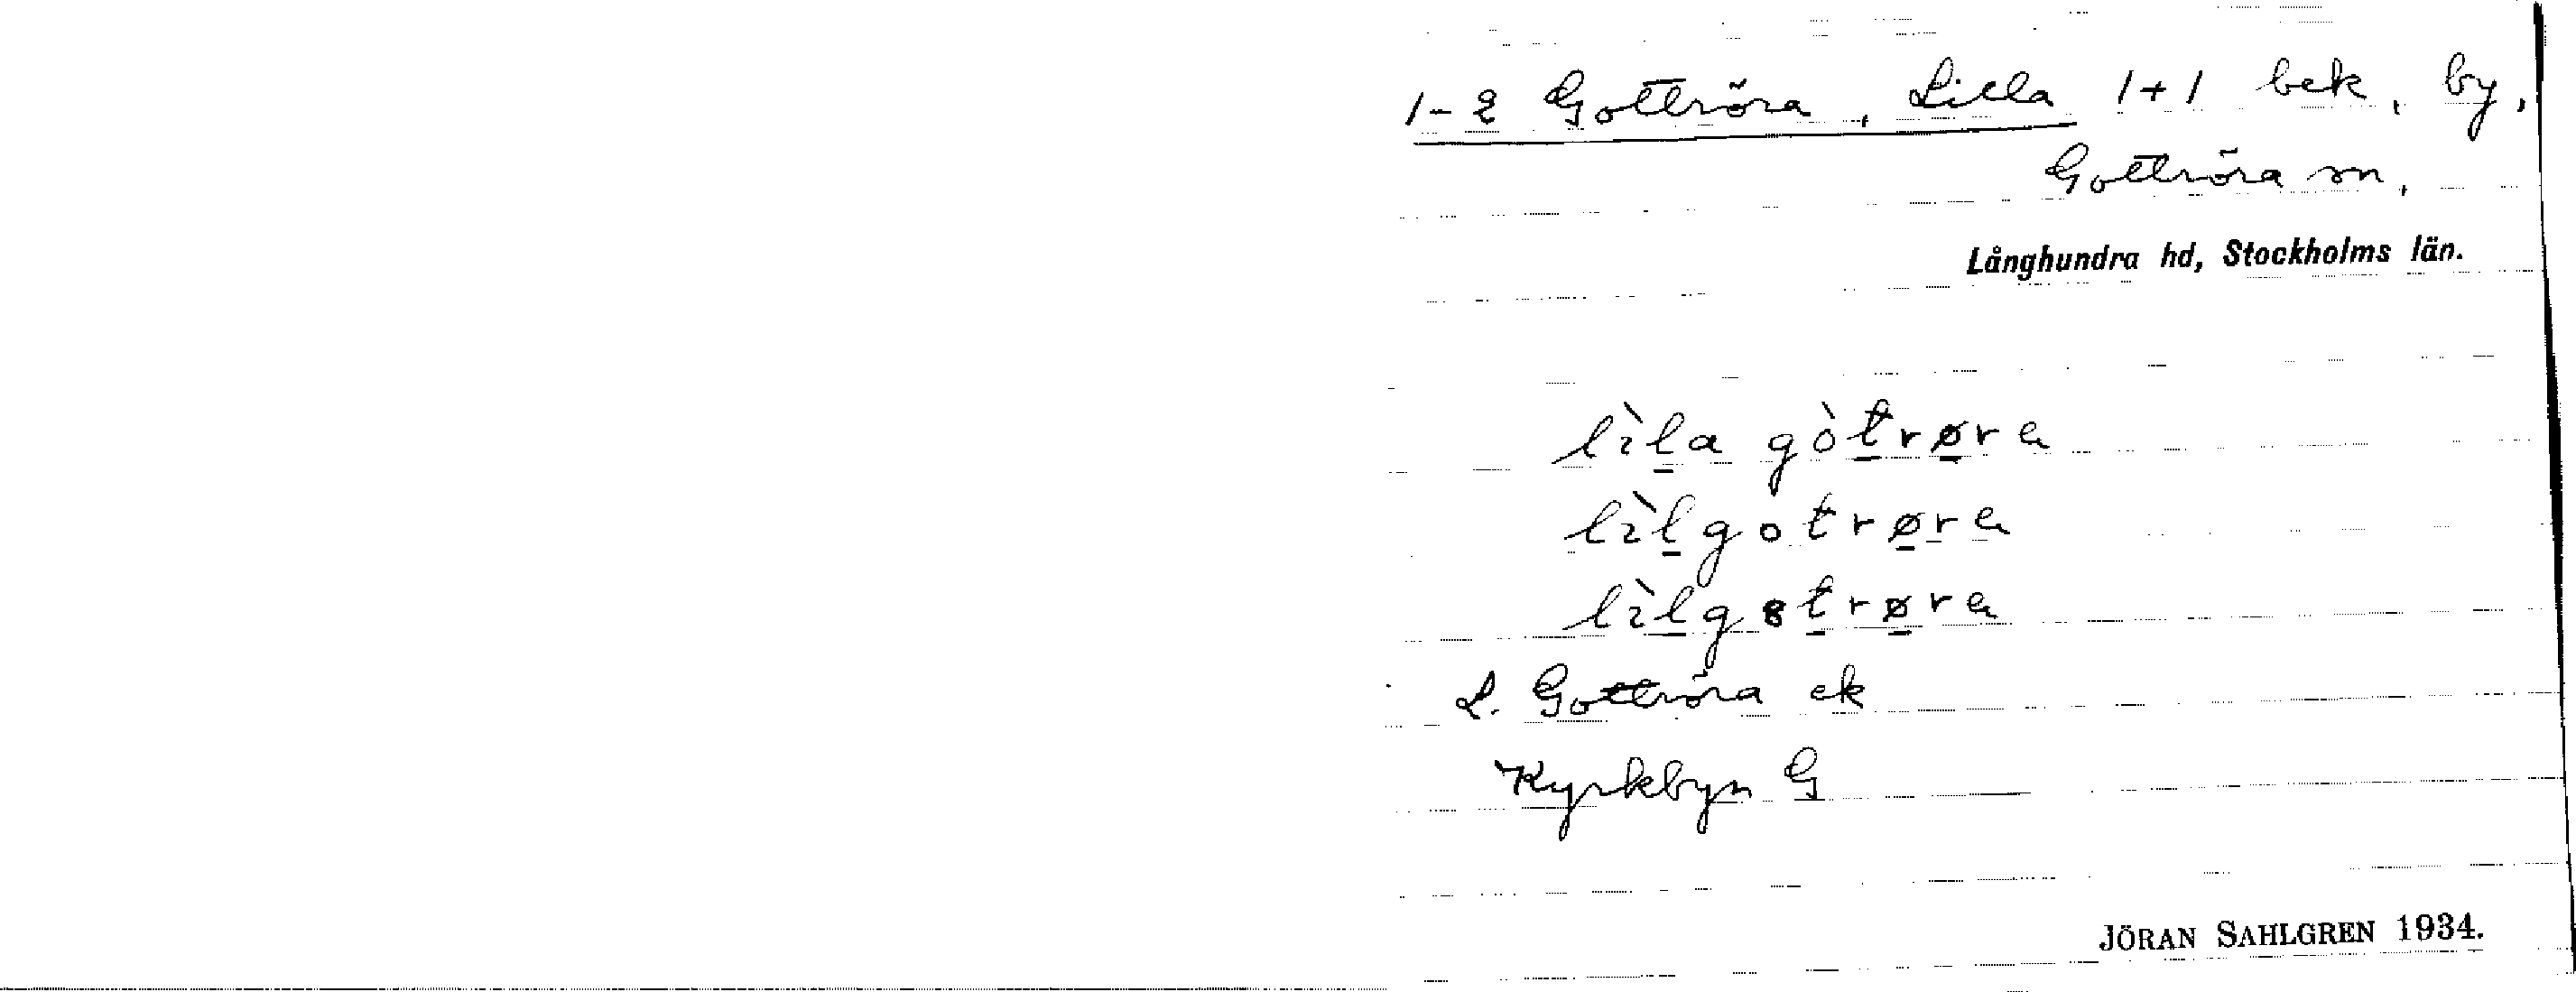 1-2 Gottröra, Lilla 1+1 bek, by,
Gottröra sn,
Långhundra hd, Stockholms län.
lìla gòtrøra
lìlgotrøra
lìlgotrøra
L. Gottröra ek
Kyrkbyn G
JÖRAN SAHLGREN 1934.